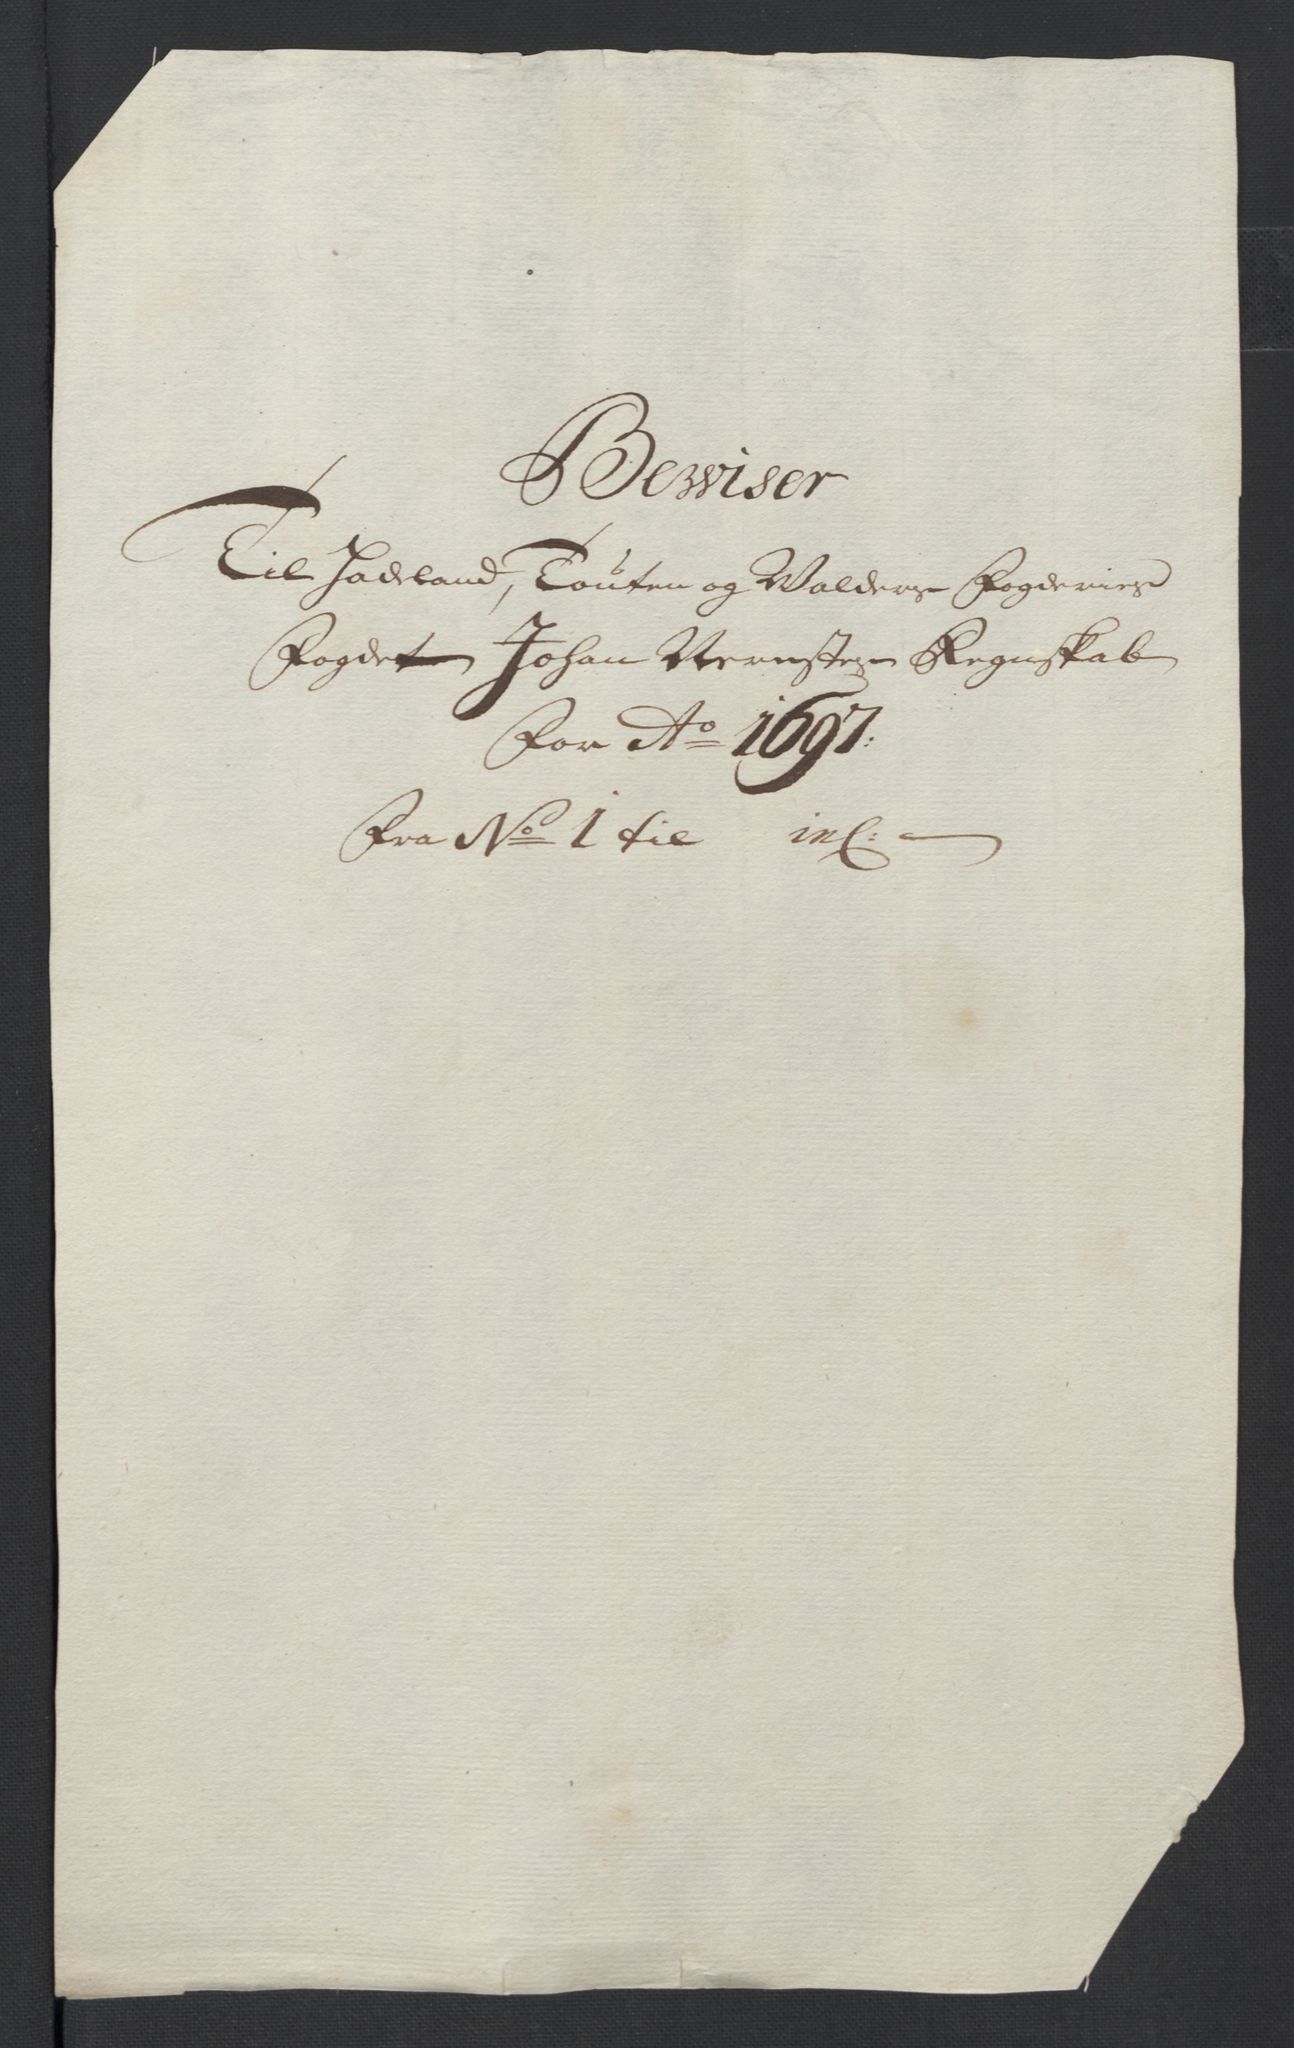 Bewiser
Til Hadeland, Touten og Walders Fogderies
Fogdet Johan Regnskab
For Ao 1697:
Fra No 1 til incl: